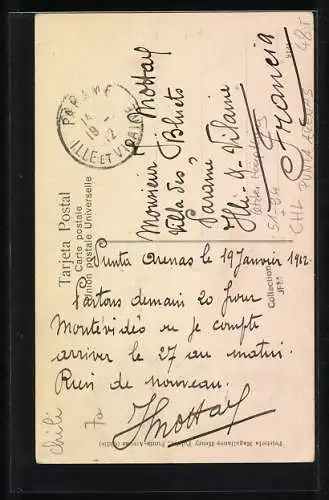 Tarjeta Postal
Carte postale
Union postale Universelle
PARAMÉ
12
ILLE ET VILAINE
Monsieur Mottay
Villa des Bluets
Paramé
Ille-&-Vilaine
Francia
Punta Arenas le 19 Janvier 1912
Partons demain 20 pour
Montévidéo ou je compte
arriver le 27 au matin.
Rien de nouveau.
JMottay
CHL PUNTA ARENAS
481
Collection
JFM
Chili